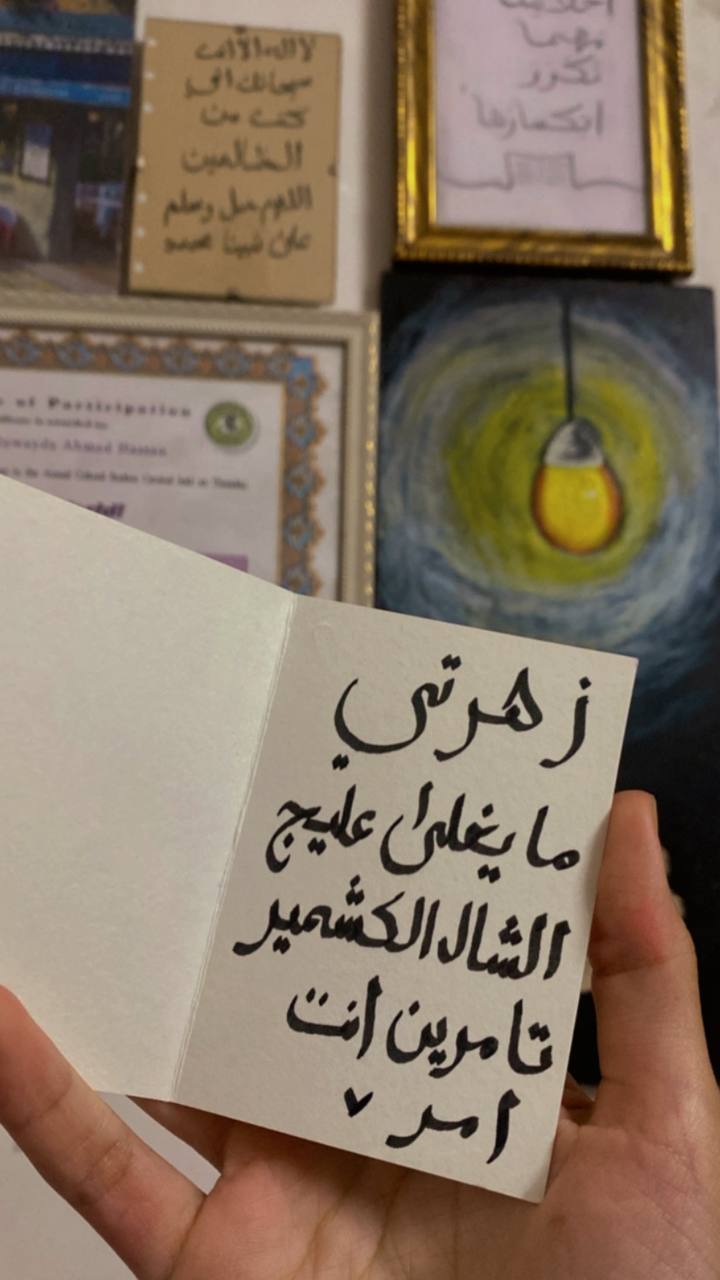 لا اله الا انت
سبحانك اني
كنت من
الظالمين
اللهم صل وسلم
على نبينا محمد
مهما
تكرر
انكسارها
of Participation
Ahmad Hassan
زهرتي
ما يغلى عليج
الشال الكشمير
تامرين أنت
امر